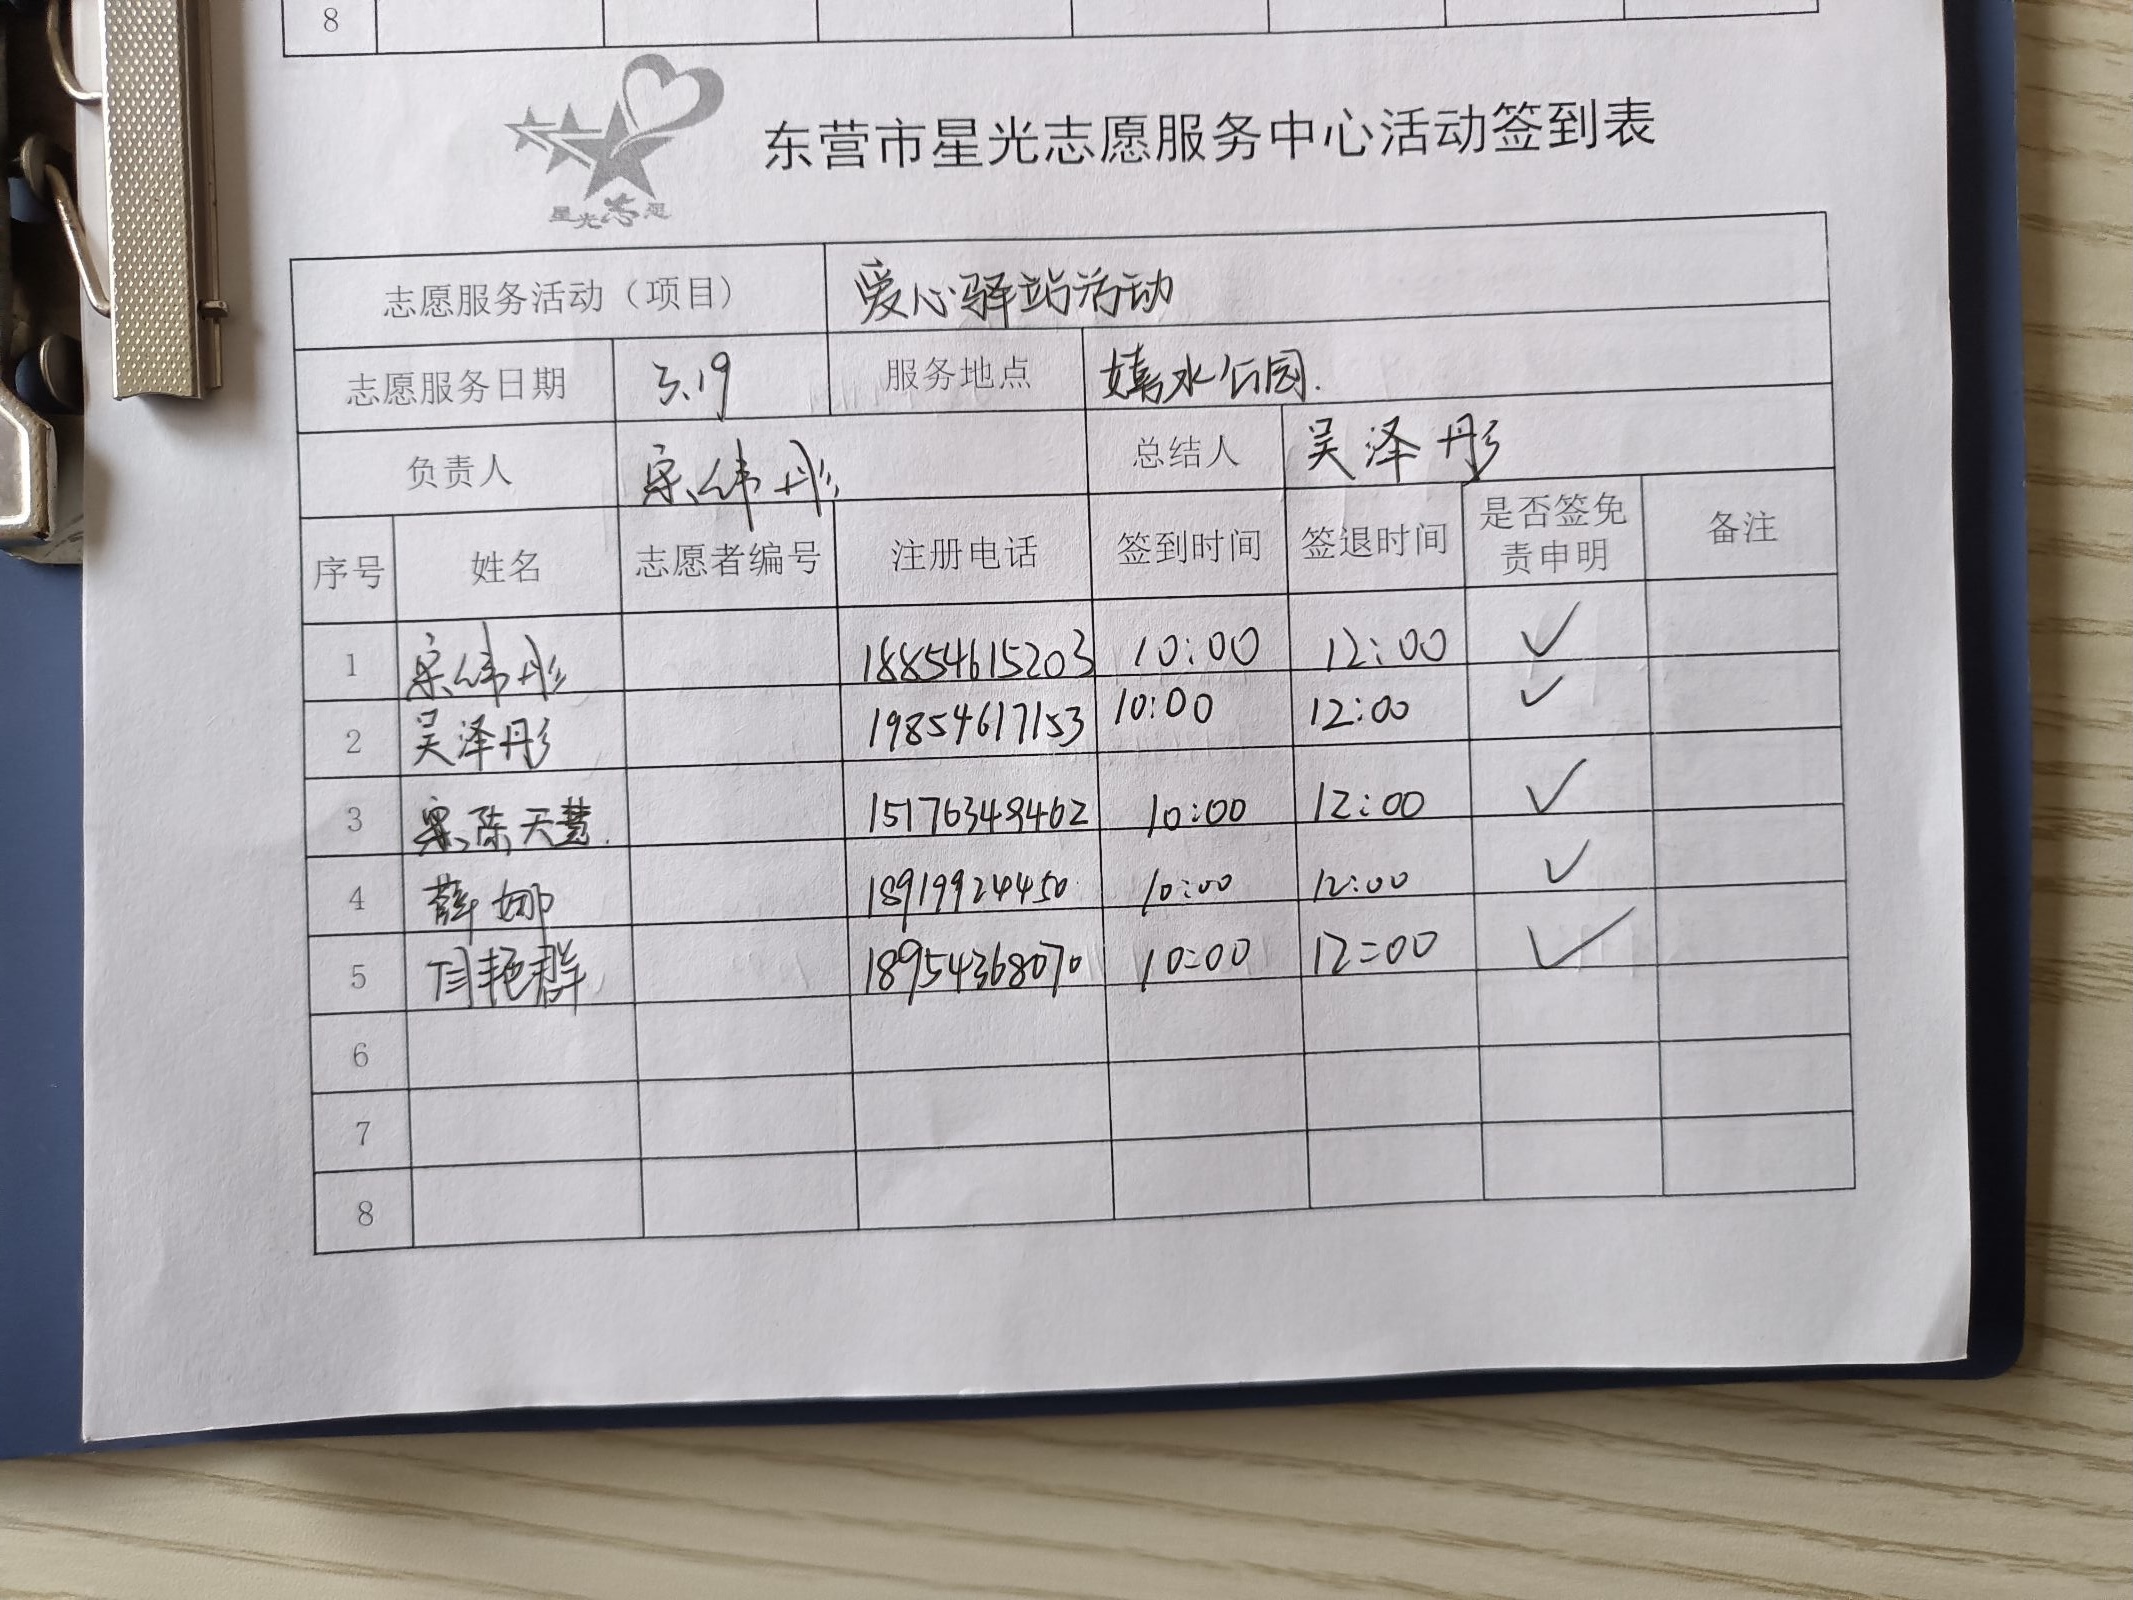 8
星光志愿
东营市星光志愿服务中心活动签到表
志愿服务活动（项目） 爱心驿站活动
志愿服务日期 3.19 服务地点 嬉水公园.
负责人 宋伟彤 总结人 吴泽彤
序号 姓名 志愿者编号 注册电话 签到时间 签退时间 是否签免责申明 备注
1 宋伟彤 18854615203 10:00 12:00 ✓
2 吴泽彤 19854617153 10:00 12:00 ✓
3 陈天慧. 15176349462 10:00 12:00 ✓
4 薛娜 18919924450 10:00 12:00 ✓
5 闫艳群 18954368070 10:00 12:00 ✓
6
7
8